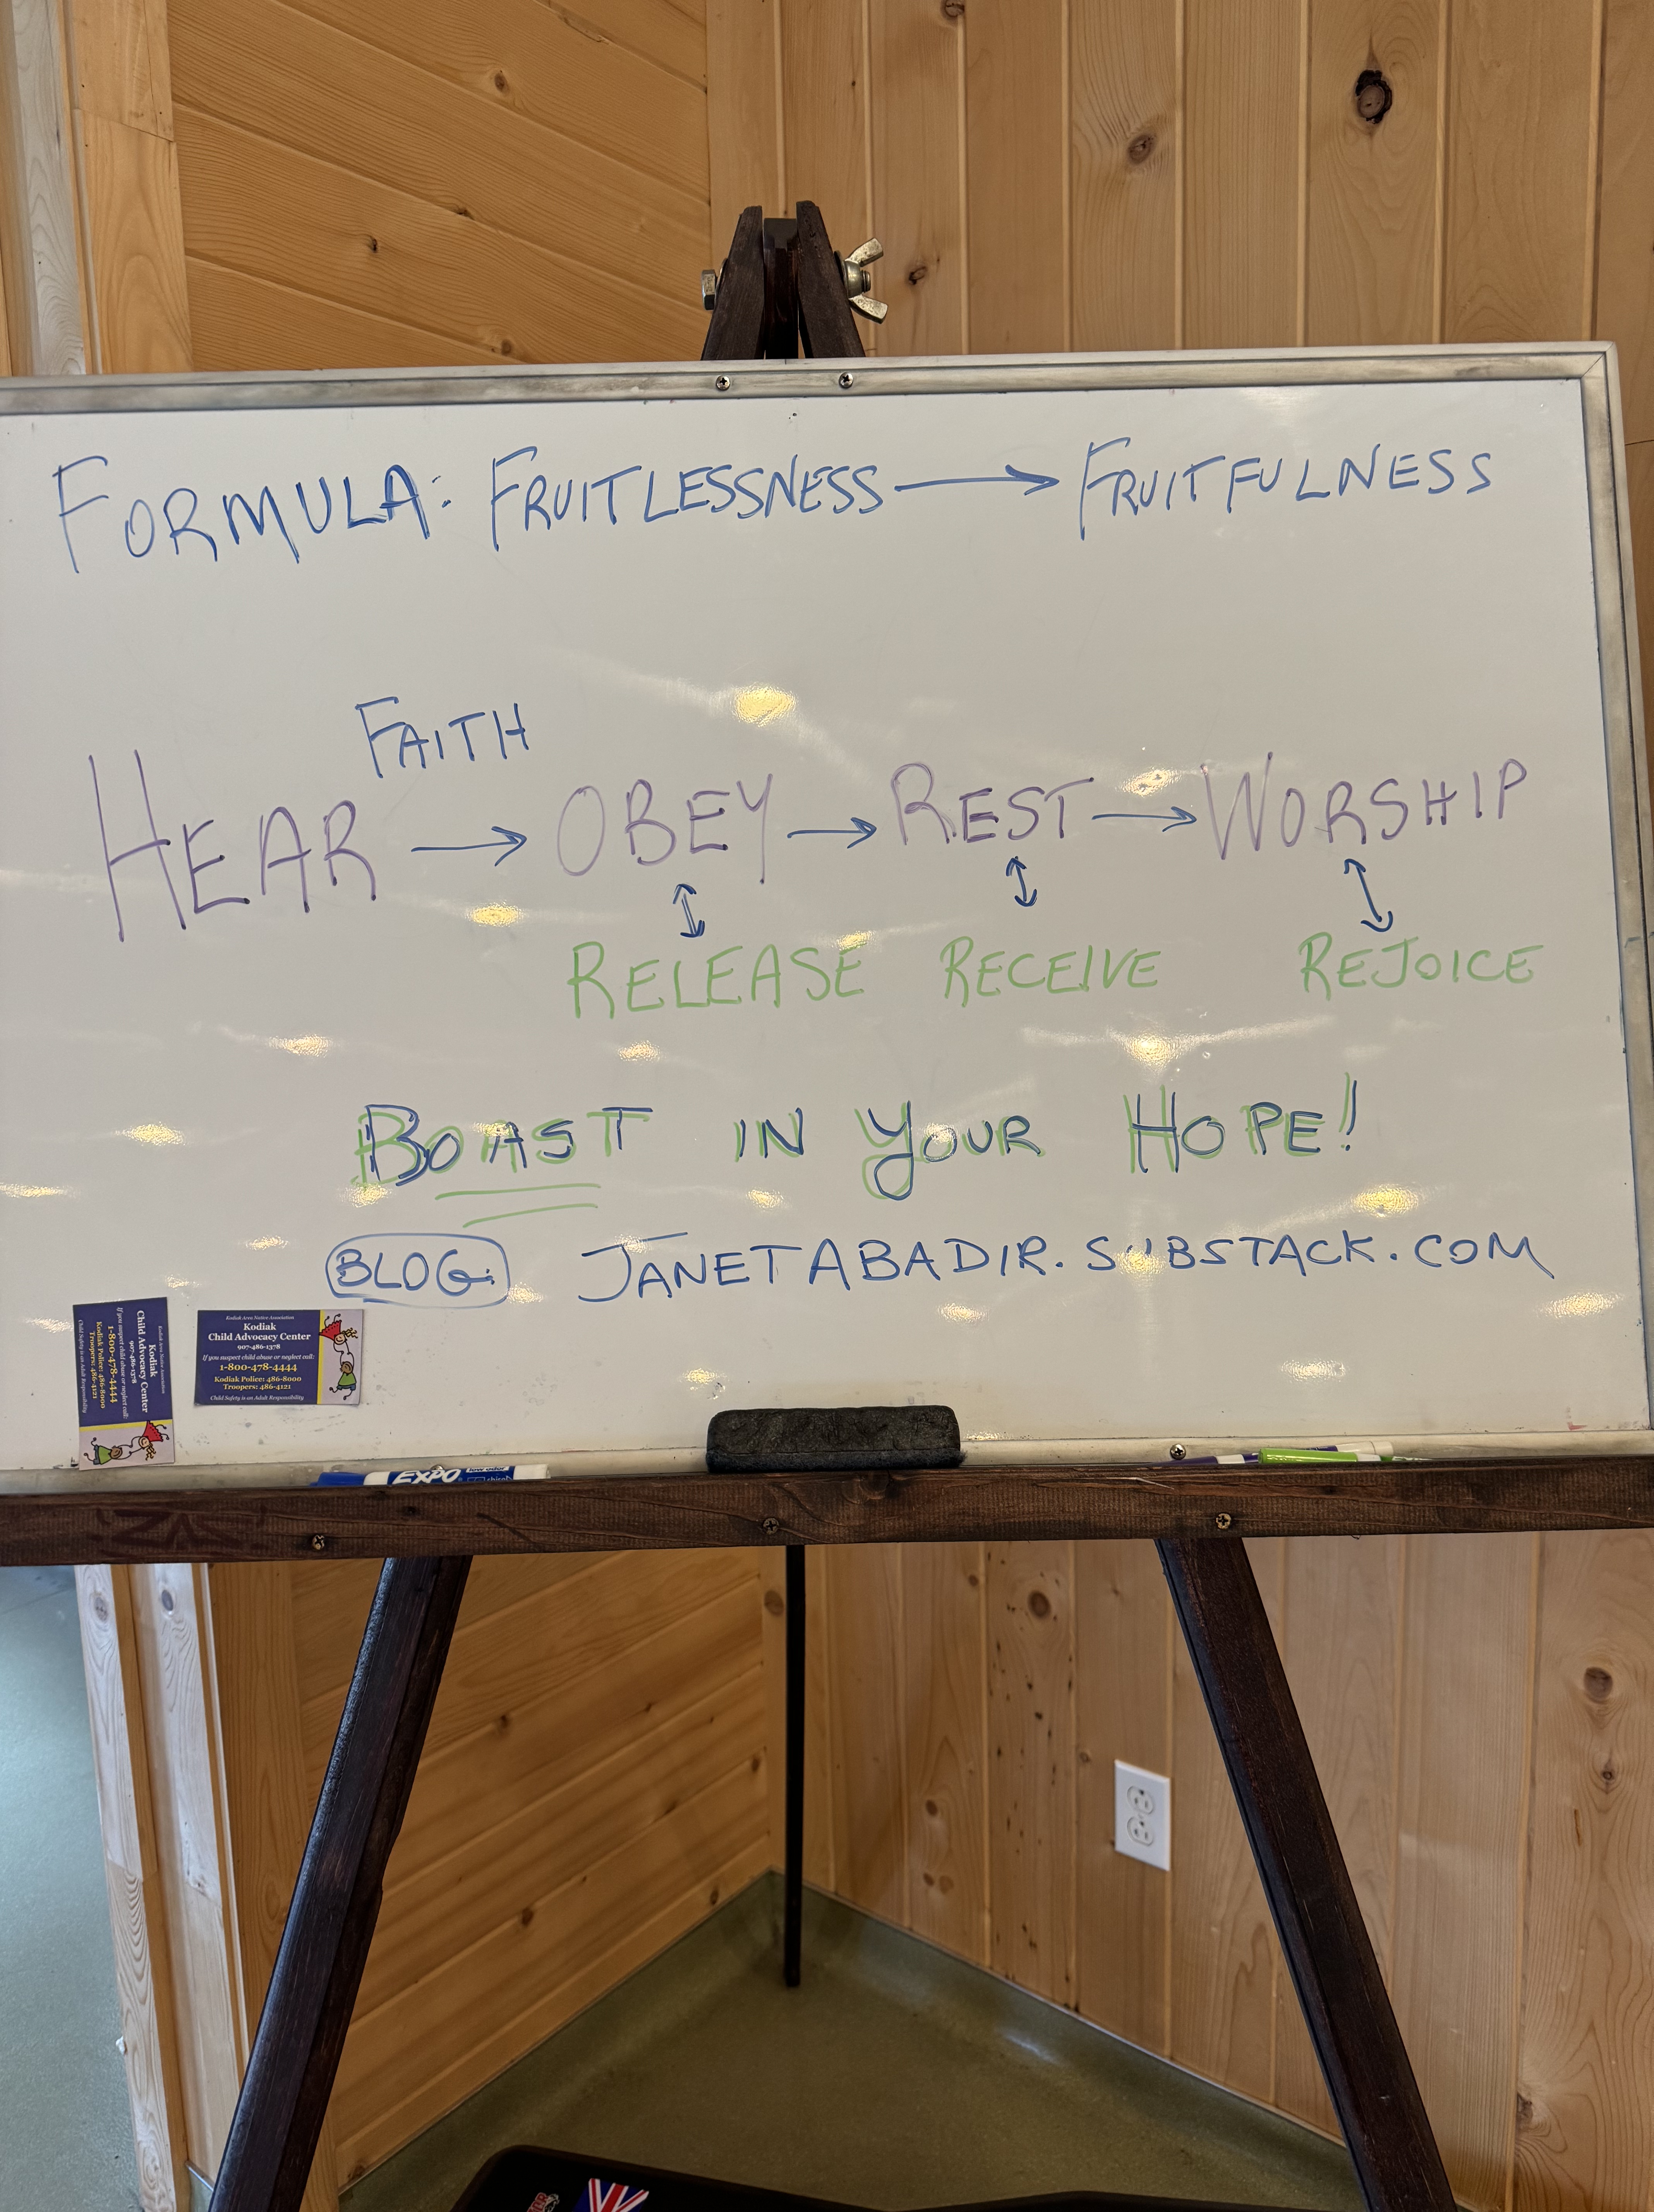 FORMULA: FRUITLESSNESS → FRUITFULNESS
FAITH
HEAR → OBEY → REST → WORSHIP
RELEASE RECEIVE REJOICE
BOAST IN YOUR HOPE!
BLOG JANETABADIR.SUBSTACK.COM
Kodiak Area Native Association
Kodiak
Child Advocacy Center
907-486-1378
If you suspect child abuse or neglect call:
1-800-478-4444
Kodiak Police: 486-8000
Troopers: 486-4121
Child Safety is an Adult Responsibility
Kodiak Area Native Association
Kodiak
Child Advocacy Center
907-486-1378
If you suspect child abuse or neglect call:
1-800-478-4444
Kodiak Police: 486-8000
Troopers: 486-4121
Child Safety is an Adult Responsibility
EXPO low odor